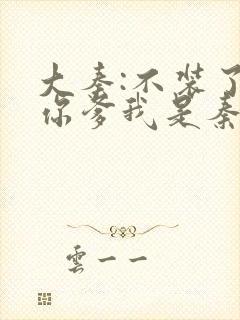 大秦:不装了
你爹我是秦
雲一一